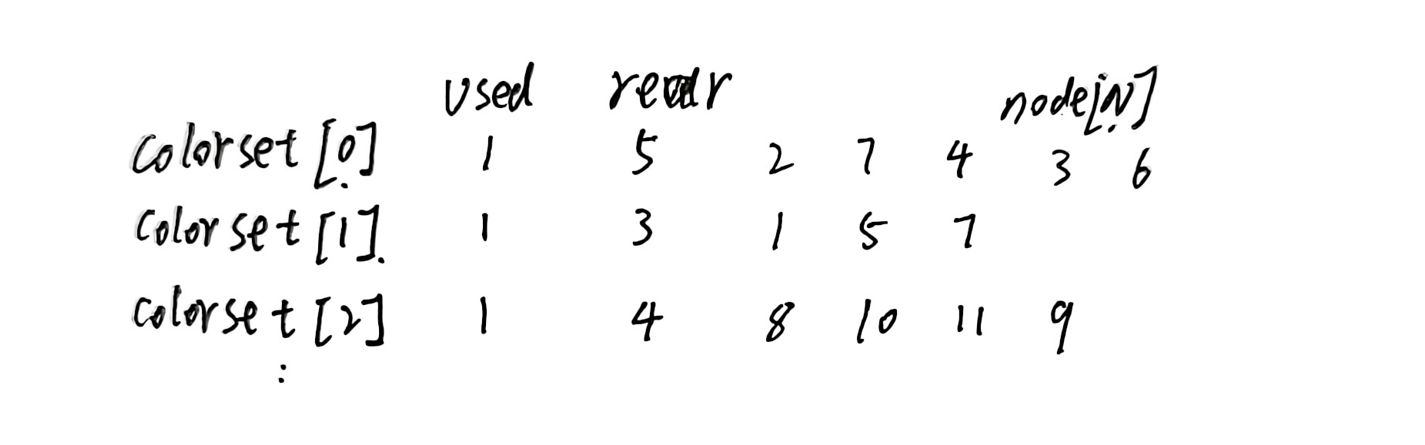 used rear
node[N]
colorset[0] 1 5 2 7 4 3 6
colorset[1] 1 3 1 5 7
colorset[2] 1 4 8 10 11 9
: